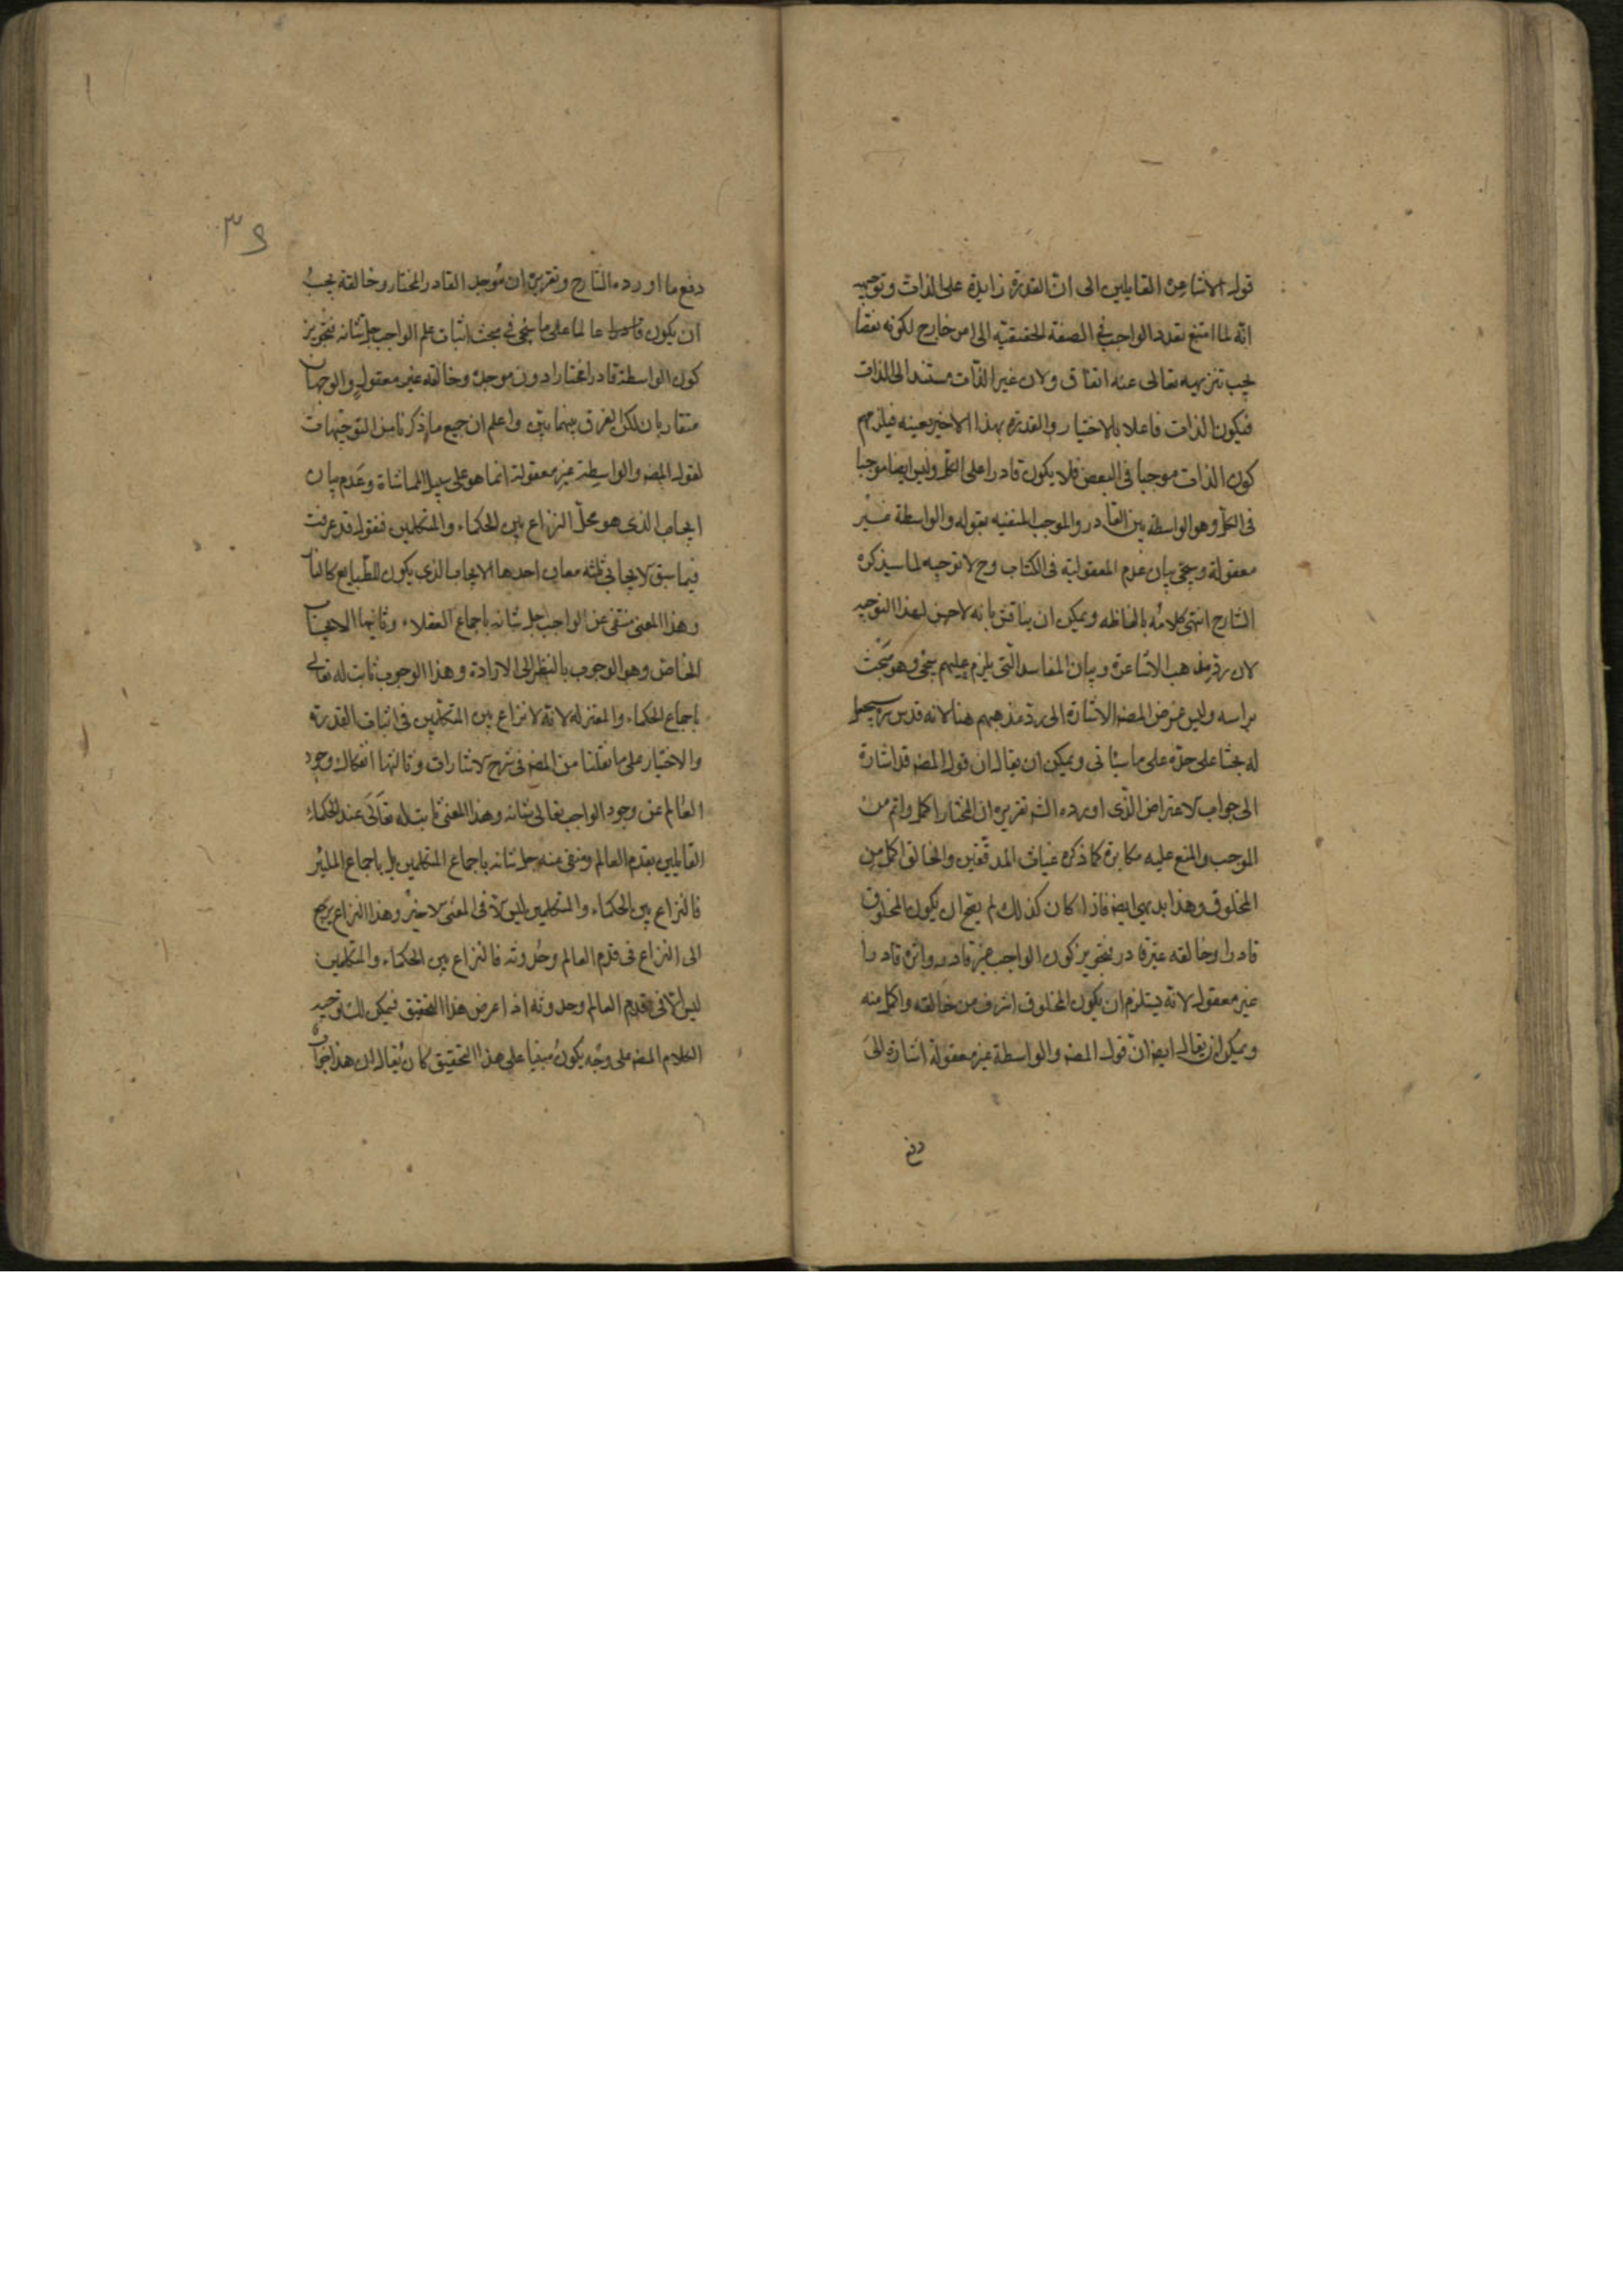 قول الاشاعرة القايلين الى ان القدرة زايدة على الذات وتوجيهه
انه لما امتنع تعدد الواجب في الصفة الحقيقية الى امر خارج لكونه نقصا
يجب تنزيهه تعالى عنه اتفاق ولان غير الذات مستند الى الذات
فيكون الذات فاعلا بالاختيار والقدرة بهذا الاخير بعينه فيلزمهم
كون الذات موجبا في البعض فلا يكون قادرا على الكل وليس ايضا موجبا
في الكل وهو الواسطة بين القادر والموجب المنفيه بقوله والواسطة غير
معقولة وسيجئ بيان عدم المعقولية في الكتاب وح لا توجيه لما سيذكره
الشارح انتهى كلامه بالفاظه ويمكن ان يناقش بانه لا حسن لهذا التوجيه
لان رد مذهب الاشاعرة وبيان المفاسد التي يلزم عليهم سيجئ وهو مبحث
براسه وليس غرض المصنف الاشارة الى رد مذهبهم هنا لانه قدس سره سيجعل
له بحثا على حدة على ما سياتي ويمكن ان يقال ان قول المصنف قد اشارة
الى جواب لاعتراض الذى اورده الشه تقريره ان المختار اكمل واتم من
الموجب والمنع عليه مكابرة كما ذكره غياث المدققين والخالق اكمل من
المخلوق وهذا بديهي ايضا فاذا كان كذلك لم يصح ان يكون المخلوق
قادرا وخالقه غير قادر فتجويز كون الواجب غير قادر واثره قادرا
غير معقول لانه يستلزم ان يكون المخلوق اشرف من خالقه واكمل منه
ويمكن ان يقال ايضا ان قول المصنف والواسطة غير معقولة اشارة الى
دفع
٣٩
دفع ما اورده الشارح وتقريره ان موجد القادر المختار وخالقه يجب
ان يكون قادرا عالما على ما سيجئ في مبحث اثبات علم الواجب جل شانه فتجويز
كون الواسطة قادرا مختارا دون موجده وخالقه غير معقول والوجهان
متقاربان لكن الفرق بينهما بين واعلم ان جميع ما ذكرنا من التوجيهات
لقول المصنف والواسطة غير معقولة انما هو على سبيل المماشاة وعدم بيان
ايجاب الذى هو محل النزاع بين الحكماء والمتكلمين فنقول قد عرفت
فيما سبق لايجاب ثلثه معان احدها الايجاب الذى يكون للطبايع كالنار
وهذا المعنى منتفى عن الواجب جل شانه باجماع العقلاء وثانيها الايجاب
الخاص وهو الوجوب بالنظر الى الارادة وهذا الوجوب ثابت له تعالى
باجماع الحكماء والمعتزله لانه لا نزاع بين المتكلمين في اثبات القدرة
والاختيار على ما نقلنا من المصنف في شرح لاشارات وثالثها انفكاك وجود
العالم عن وجود الواجب تعالى شانه وهذا المعنى ثابت له تعالى عند الحكماء
القايلين بقدم العالم ومنفى عنه جل شانه باجماع المتكلمين بل باجماع المليين
فالنزاع بين الحكماء والمتكلمين ليس الا في المعنى لاخير وهذا النزاع يرجع
الى النزاع في قدم العالم وحدوثه فالنزاع بين الحكماء والمتكلمين
ليس الا في قدم العالم وحدوثه اذا عرض هذا التحقيق فيمكن لك توجيه
الكلام المصنف على وجه يكون مبنيا على هذا التحقيق كان يقال ان هذا جواب